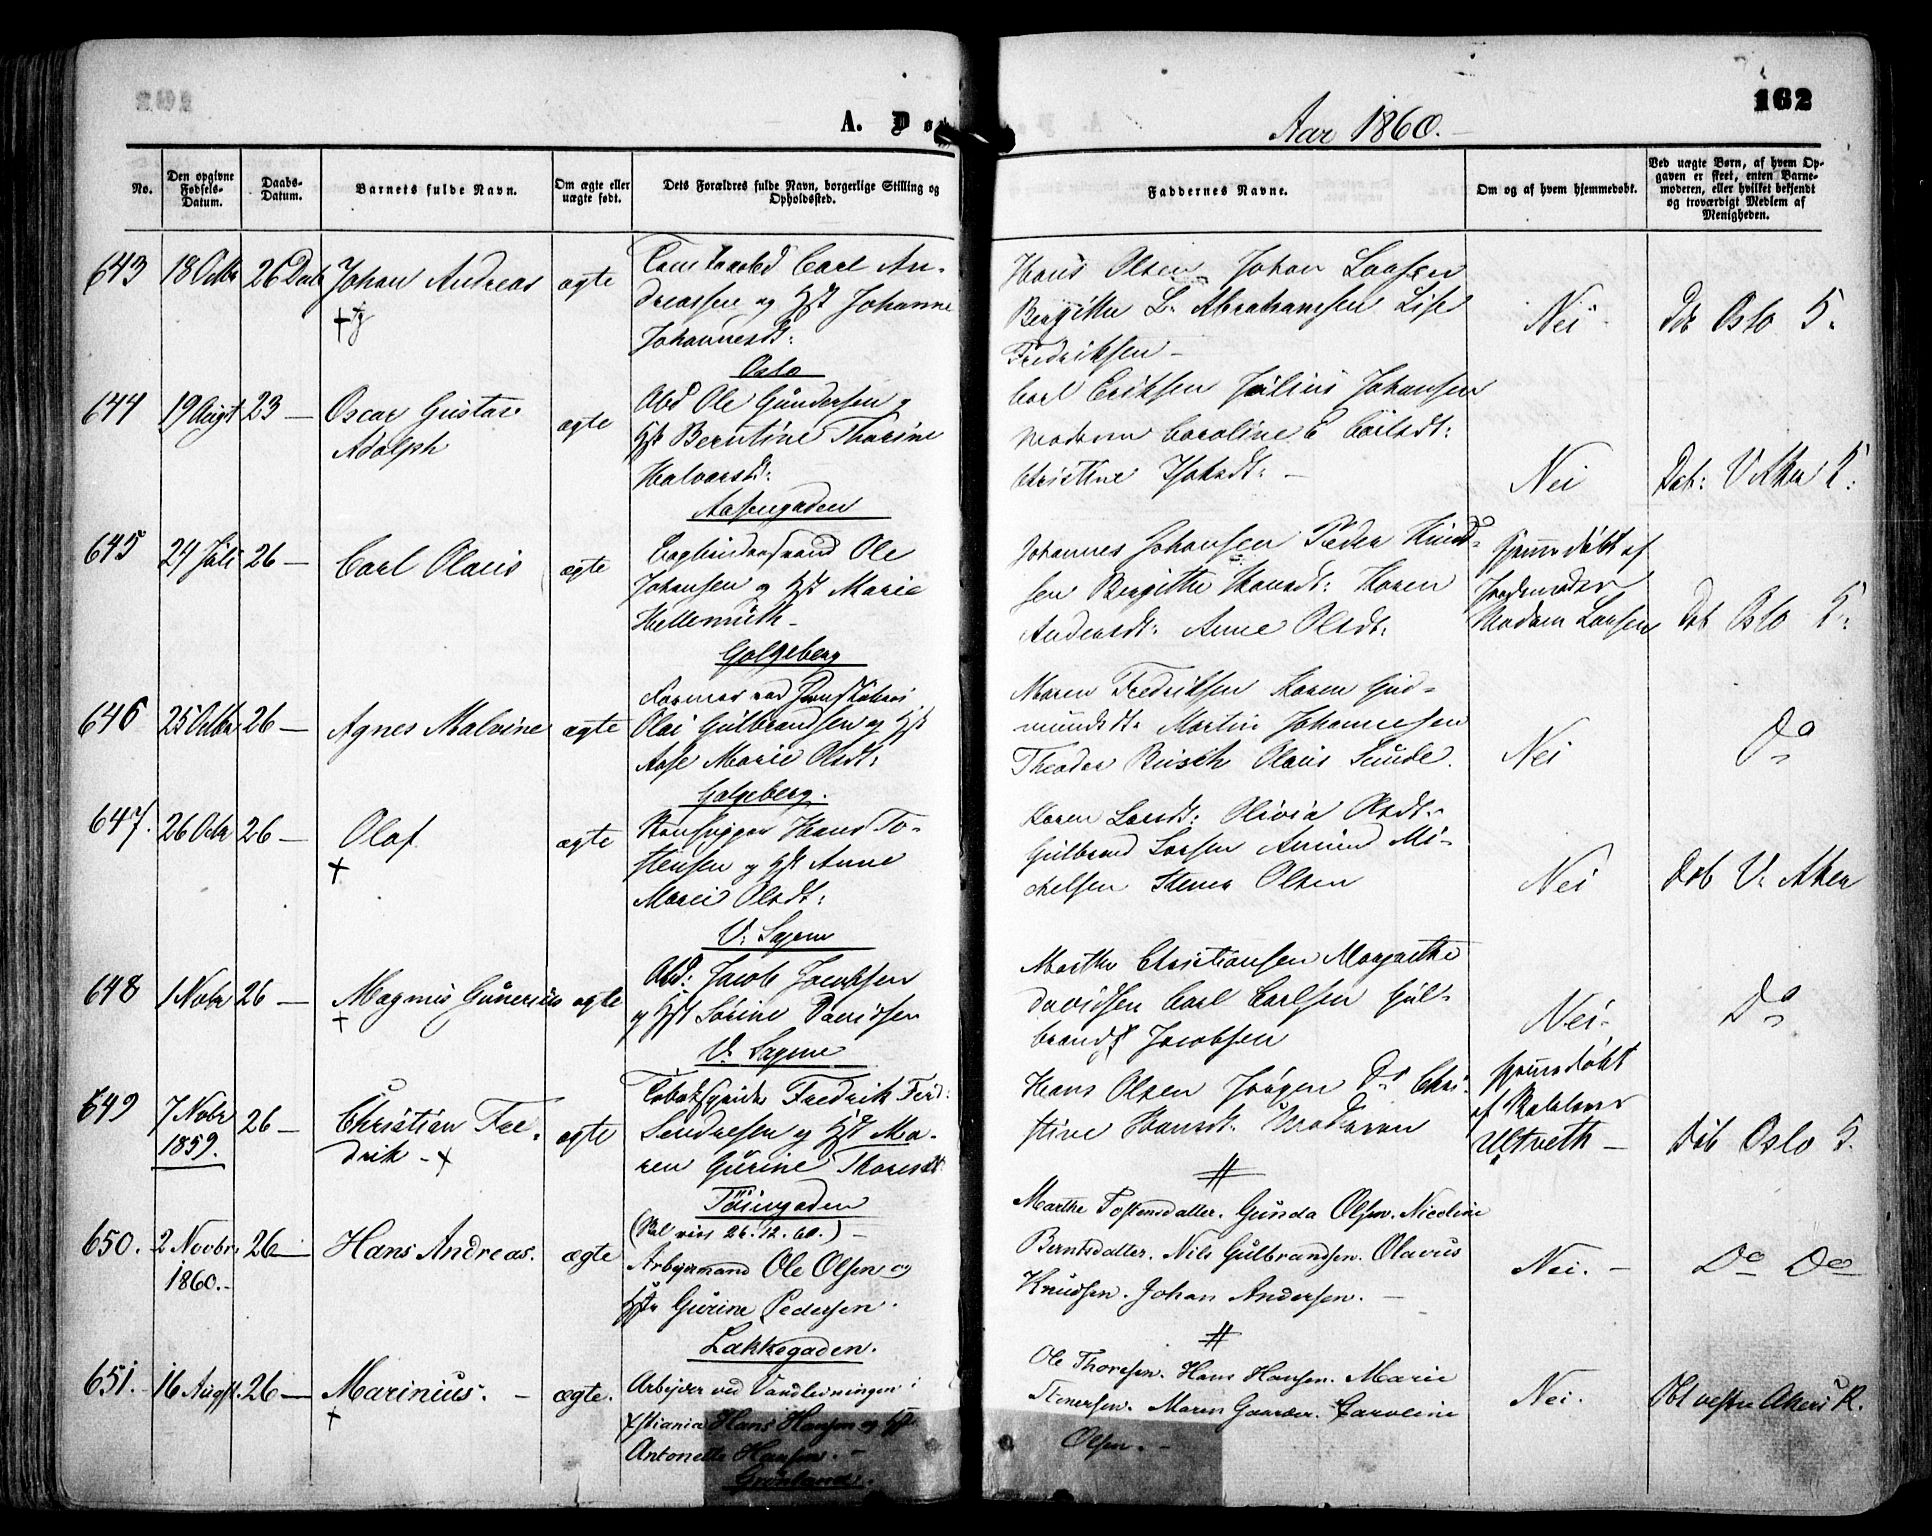 A. Dø
Aar 1860.
162
No.
Den opgivne Fødsels-Datum.
Daabs-Datum.
Barnets fulde Navn.
Om ægte eller uægte født.
Dets Forældres fulde Navn, borgerlige Stilling og Opholdssted.
Faddernes Navne.
Om og af hvem hjemmedøbt.
Ved uægte Børn, af hvem Opgaven er skeet, enten Barnemoderen, eller hvilket bekjendt og troværdigt Medlem af Menigheden.
643 18 Octbr 26 Johan Andreas ægte
Carl An-
dreassen og Hst Johanne
Johannesdt:
Oslo
Hans Olsen Johan Larsen
Birgitte L. Abrahamsen Lise
Fredriksen
Nei
Oslo
644 19 Augt 23 — Oscar Gustav
Adolph
ægte
Abd Ole Gundersen og
Hst Berntine Thorine
Halvorsd:
Aasengaden
Carl Eriksen Julius Johansen
Madam Caroline E Carlsdt:
Christine
Nei
Døb: V Aker K:
645 24 Juli 26 — Carl Olaus ægte
Ole
Johansen og Hst Marie
Hellemuth
Galgeberg
Johannes Johansen Peder Knud-
sen Birgitte Hansdt: Karen
Andersdt: Anne Olsdt:
hjemmedøbt af
Jordemoder
Madam Larsen
Døb Oslo K:
646 25 Octbr 26 — Agnes Malvine ægte
Olai Gulbrandsen og Hst
Aase Marie Olsdt:
Galgeberg.
Maren Fredriksen Karen Gud-
mundsdt: Martin Johannesen
Theodor Busch Olaus Sunde.
Nei
Do
647. 26 Octr 26 — Olaf ægte
†
Hans To-
stensen og Hst Anne
Marie Olsdt:
V: Sagene
Karen Larsdt: Olivia Olsdt:
Gulbrand Larsen Amund Mi-
chelsen Stener Olsen
Nei
Døb V: Aker
648 1 Novbr 26 — Magnus Gunerius ægte
†
Abd: Jacob Jacobsen
og Hst Sorine Davidsen
V: Sagene
Marthe Christiansen Margrethe
Davidsen Carl Carlsen Gul-
brand Jacobsen
Nei
Do
649 7 Novbr
1859.
26 — Christian Fre-
drik
ægte
Fredrik Ferd:
og Hst Ma-
ren Gurine Thoresdt
Töiengaden
Hans Olsen Jörgen Do Chri-
stine Hansdt:
hjemmedøbt
af
Ultveth —
Døb Oslo
650. 2 Novbr
1860.-
26 — Hans Andreas. ægte
26.12.60.)
Arbejdsmand Ole Olsen og
Hst Gurine Pedersen.
Lakkegaden.
#
Marthe Tostensdatter. Gunda Olsen. Nicoline
Berntsdatter. Nils Gulbrandsen. Olavus
Knudsen. Johan Andersen. —
Nei. —
Do Do
651. 16 Augst. 26 — Marinius. ægte.
†
Arbejder ved Vandledningen i
Xstiania Hans Hansen og Hst.
Antonette Hansen. —
Grønland.
#
Ole Thoresen. Hans Hansen. Marie
Stenersen. Maren Gaarder. Caroline
Olsen. —
Nei.
Dbt vestre Akers K.